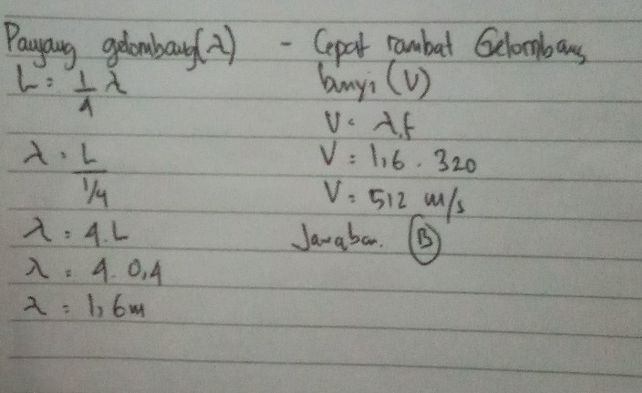 Panjang gelombang (λ)
L = 1/4 λ
λ = L / 1/4
λ = 4.L
λ = 4. 0,4
λ = 1,6m
- Cepat rambat Gelombang
bunyi (V)
V = λ.f
V = 1,6 . 320
V = 512 m/s
Jawaban. B